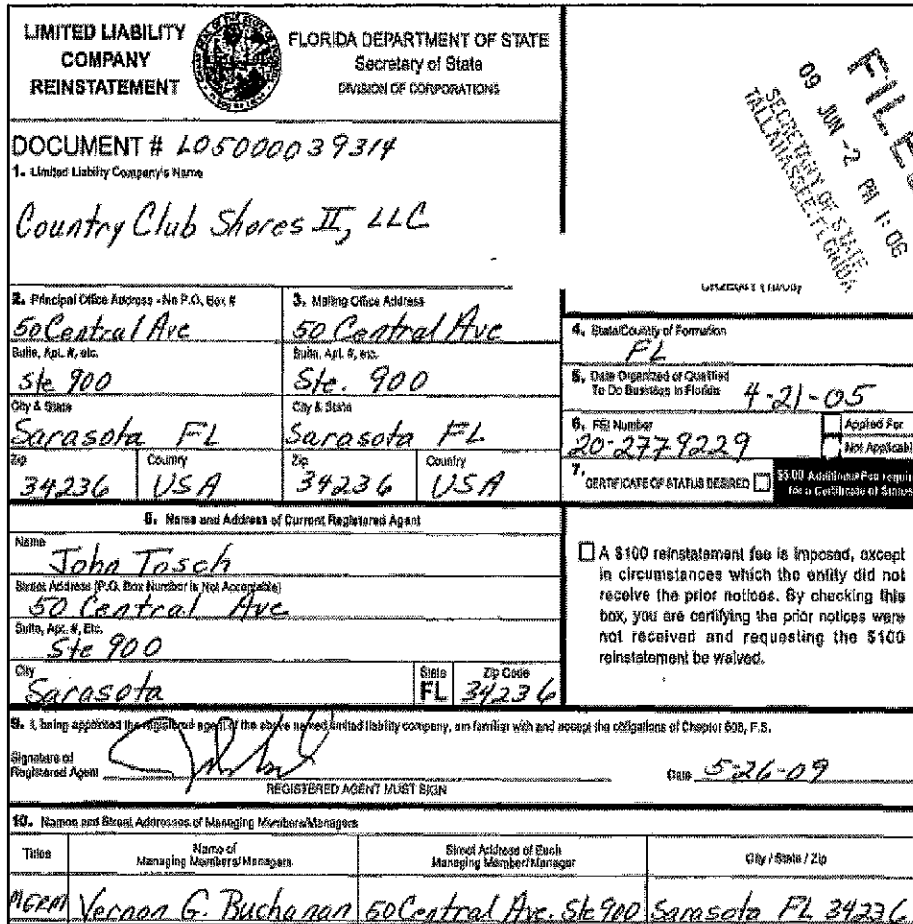 LIMITED LIABILITY
COMPANY
REINSTATEMENT
FLORIDA DEPARTMENT OF STATE
Secretary of State
DIVISION OF CORPORATIONS
FILED
09 JUN -2 PM 1:06
SECRETARY OF STATE
TALLAHASSEE, FLORIDA
DOCUMENT # L05000039314
1. Limited Liability Company's Name
Country Club Shores II, LLC
2. Principal Office Address - No P.O. Box #
50 Central Ave
Suite, Apt. #, etc.
Ste 900
City & State
Sarasota FL
Zip
34236
Country
USA
3. Mailing Office Address
50 Central Ave
Suite, Apt. #, etc.
Ste. 900
City & State
Sarasota FL
Zip
34236
Country
USA
4. State/Country of Formation
FL
5. Date Organized or Qualified
To Do Business in Florida
4-21-05
6. FEI Number
20-2779229
Applied For
Not Applicabl
7. CERTIFICATE OF STATUS DESIRED
$5.00 Additional Fee requir
for a Certificate of Status
8. Name and Address of Current Registered Agent
Name
John Tosch
Street Address (P.O. Box Number is Not Acceptable)
50 Central Ave
Suite, Apt. #, Etc.
Ste 900
City
Sarasota
State
FL
Zip Code
34236
A $100 reinstatement fee is imposed, except
in circumstances which the entity did not
receive the prior notices. By checking this
box, you are certifying the prior notices were
not received and requesting the $100
reinstatement be waived.
9. I, being appointed the registered agent of the above named limited liability company, am familiar with and accept the obligations of Chapter 608, F.S.
Signature of
Registered Agent
Date 5-26-09
REGISTERED AGENT MUST SIGN
10. Names and Street Addresses of Managing Members/Managers
Titles
Name of
Managing Members/Managers
Street Address of Each
Managing Member/Manager
City / State / Zip
MGRM Vernon G. Buchanan 50 Central Ave. Ste 900 Sarasota FL 34236